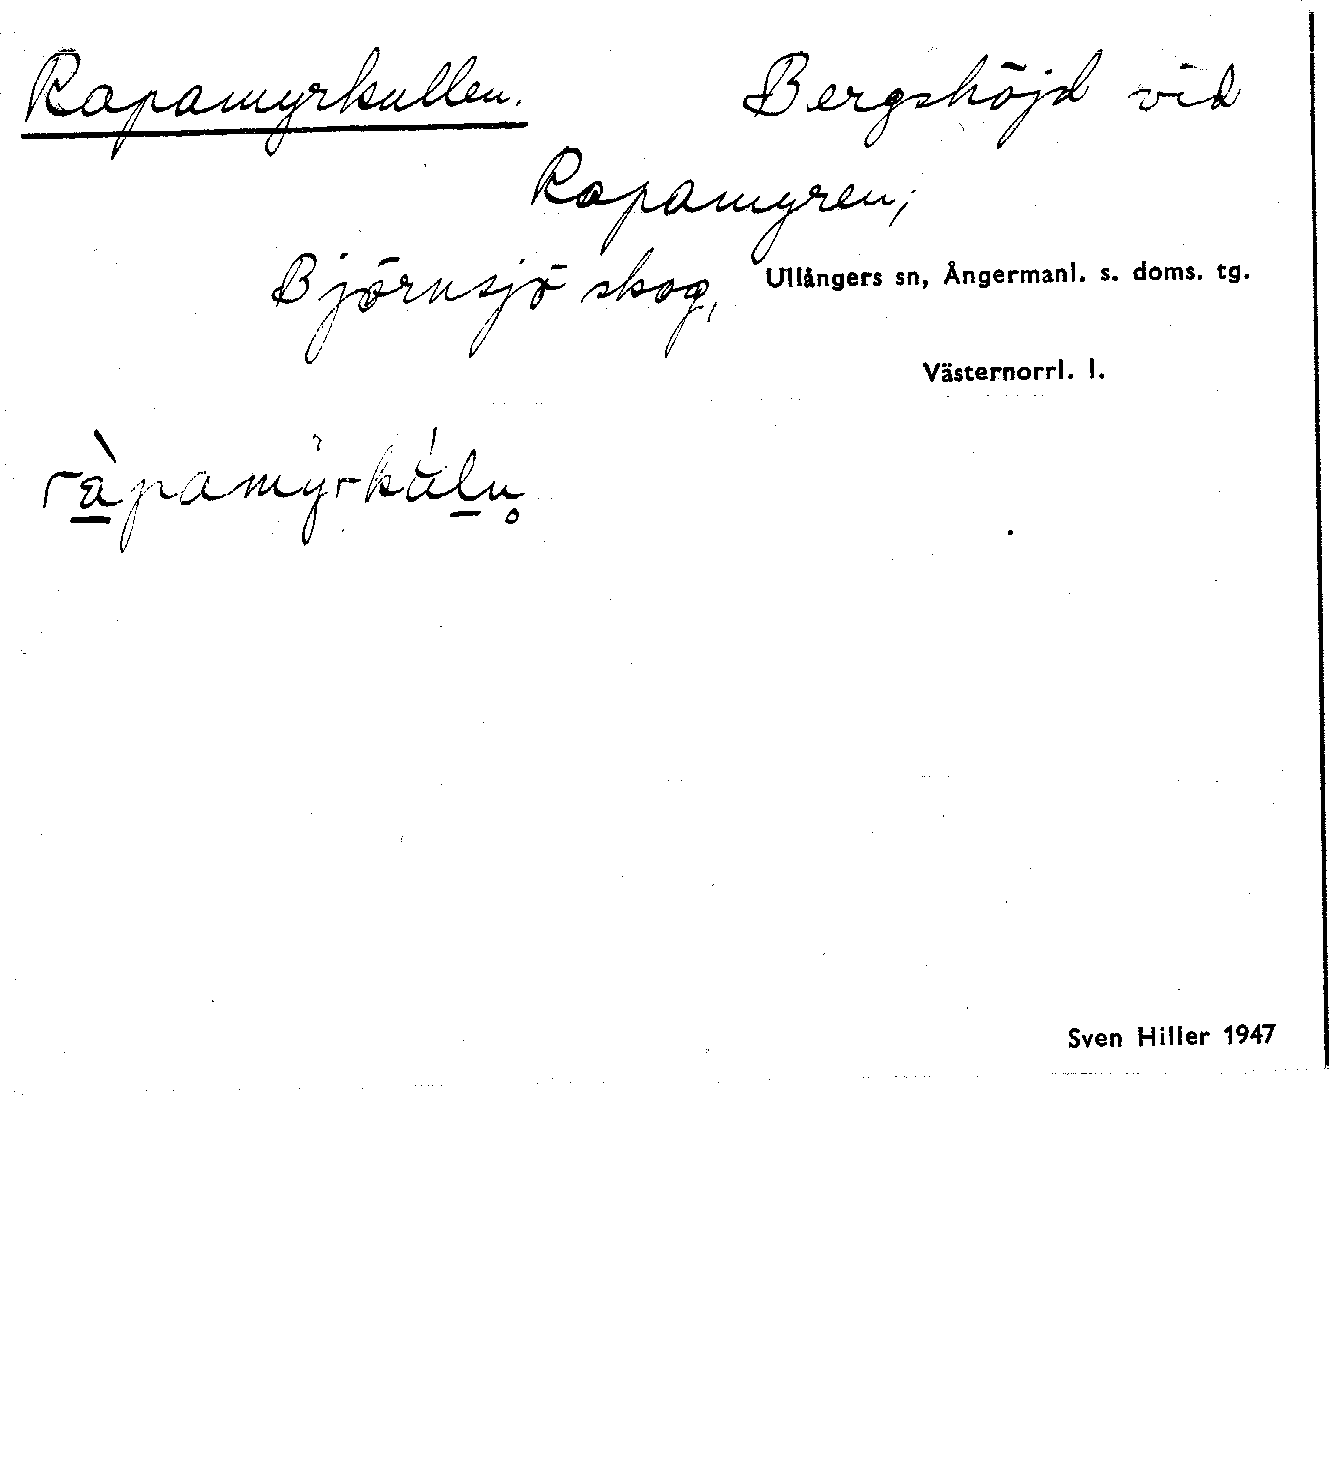 Rapamyrkullen. Bergshöjd vid
Rapamyren;
Björnsjö skog, Ullångers sn, Ångermanl. s. doms. tg.
Västernorrl. l.
Sven Hiller 1947